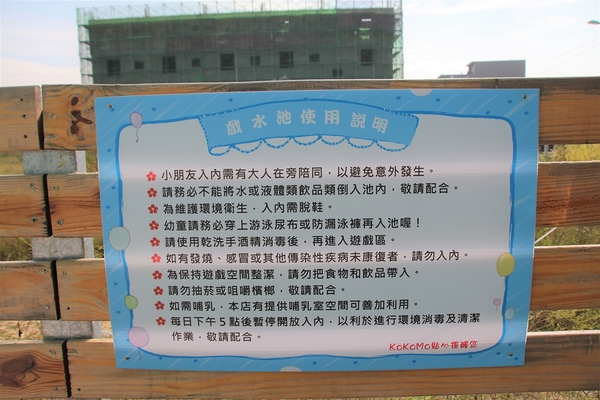 戲水池使用說明
小朋友入內需有大人在旁陪同，以避免意外發生。
請務必不能將水或液體類飲品類倒入池內，敬請配合。
為維護環境衛生，入內需脫鞋。
幼童請務必穿上游泳尿布或防漏泳褲再入池喔！
請使用乾洗手酒精消毒後，再進入遊戲區。
如有發燒、感冒或其他傳染性疾病未康復者，請勿入內。
為保持遊戲空間整潔，請勿把食物和飲品帶入。
請勿抽菸或咀嚼檳榔，敬請配合。
如需哺乳，本店有提供哺乳室空間可善加利用。
每日下午5點後暫停開放入內，以利於進行環境消毒及清潔
作業，敬請配合。
KOKOMO點心提醒您